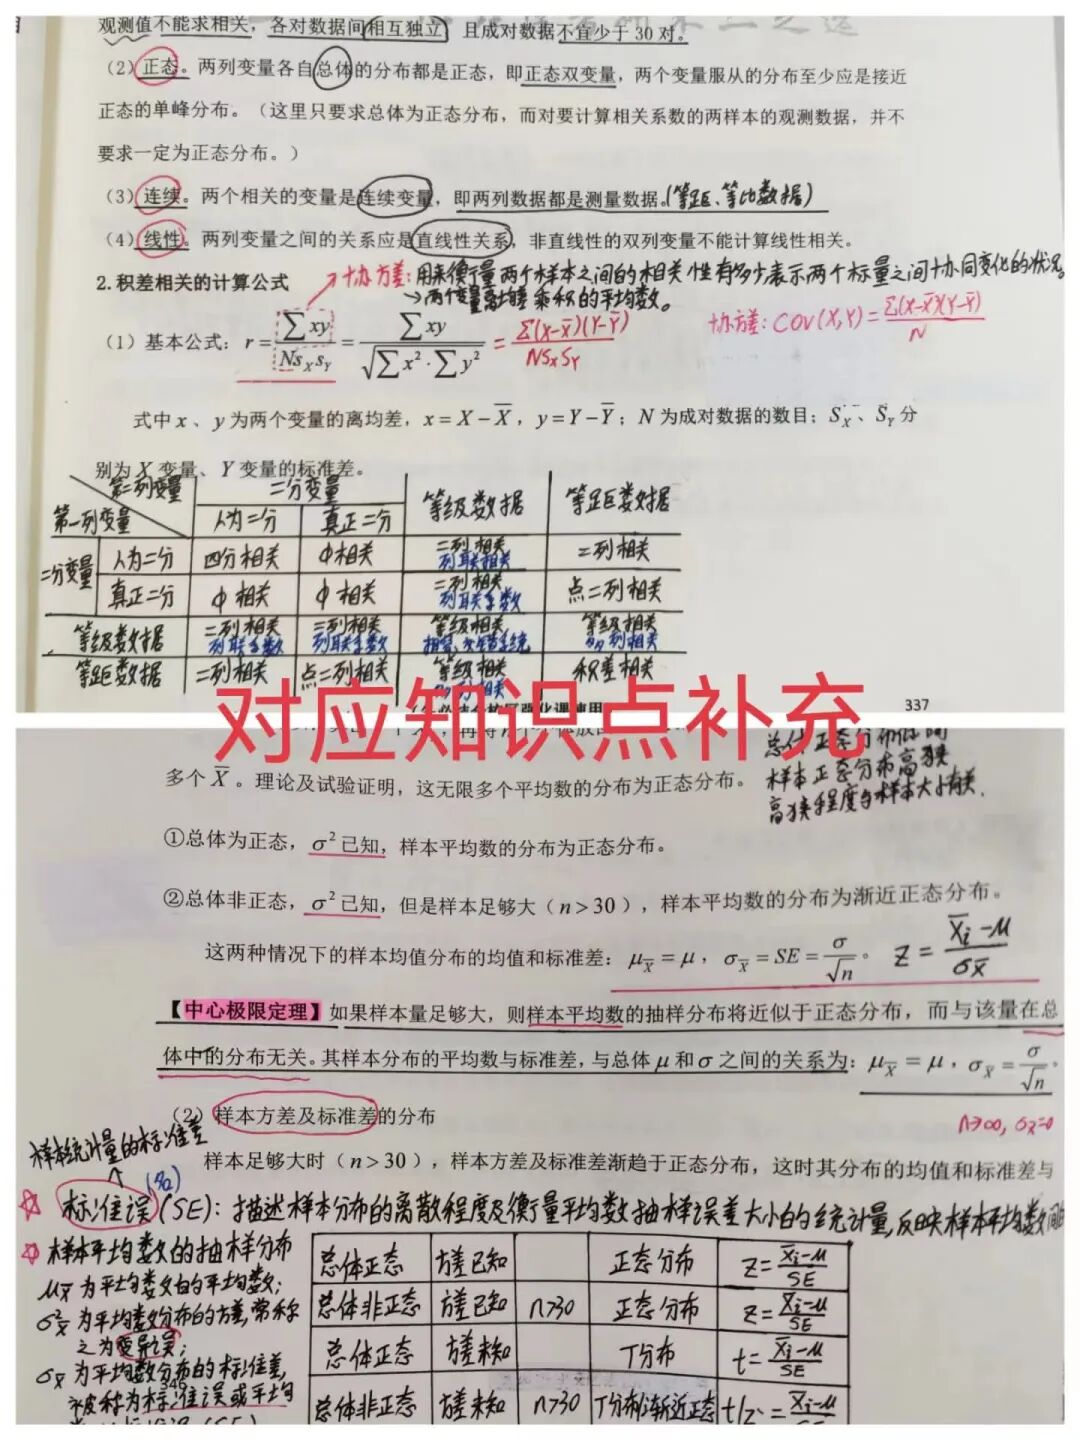 观测值不能求相关，各对数据间相互独立 且成对数据不宜少于 30 对。
（2）正态。两列变量各自总体的分布都是正态，即正态双变量，两个变量服从的分布至少应是接近
正态的单峰分布。（这里只要求总体为正态分布，而对要计算相关系数的两样本的观测数据，并不
要求一定为正态分布。）
（3）连续。两个相关的变量是连续变量，即两列数据都是测量数据。(等距、等比数据)
（4）线性。两列变量之间的关系应是直线性关系，非直线性的双列变量不能计算线性相关。
2. 积差相关的计算公式
→协方差：用来衡量两个样本之间的相关性有多少，表示两个标量之间协同变化的状况。
→两个变量离均差乘积的平均数。
（1）基本公式：r = ∑xy / NsXsY = ∑xy / √∑x²·∑y² = Σ(X-X̄)(Y-Ȳ) / NSxSY
协方差：COV(X,Y) = Σ(X-X̄)(Y-Ȳ) / N
式中 x 、y 为两个变量的离均差，x = X − X̄，y = Y − Ȳ；N 为成对数据的数目；SX、SY 分
别为 X 变量、Y 变量的标准差。
第二列变量 二分变量 等级数据 等距数据
第一列变量 人为二分 真正二分
二分变量 人为二分 四分相关 Φ相关 二列相关 列联相关 二列相关
真正二分 Φ相关 Φ相关 二列相关 列联系数 点二列相关
等级数据 二列相关 列联系数 二列相关 列联系数 等级相关 等级相关 多列相关
等距数据 二列相关 点二列相关 等级相关 多列相关 积差相关
对应知识点补充
337
总体正态分布
样本正态分布高狭
高狭程度与样本大小有关.
多个 X̄ 。理论及试验证明，这无限多个平均数的分布为正态分布。
①总体为正态，σ² 已知，样本平均数的分布为正态分布。
②总体非正态，σ² 已知，但是样本足够大（n > 30），样本平均数的分布为渐近正态分布。
这两种情况下的样本均值分布的均值和标准差：μX̄ = μ，σX̄ = SE = σ/√n 。 Z = (X̄i-μ)/σX̄
【中心极限定理】如果样本量足够大，则样本平均数的抽样分布将近似于正态分布，而与该量在总
体中的分布无关。其样本分布的平均数与标准差，与总体 μ 和 σ 之间的关系为：μX̄ = μ，σX̄ = σ/√n 。
n→∞, σX̄=0
（2）样本方差及标准差的分布
样本统计量的标准差
样本足够大时（n > 30），样本方差及标准差渐趋于正态分布，这时其分布的均值和标准差与
☆ 标准误(SE)：描述样本分布的离散程度及衡量平均数抽样误差大小的统计量,反映样本平均数间的
☆ 样本平均数的抽样分布
μX̄ 为平均数的平均数;
σ²X̄ 为平均数分布的方差,常称
之为变异误;
σX̄ 为平均数分布的标准差,
346
被称为标准误或平均
总体正态 方差已知 正态分布 Z = (X̄i-μ)/SE
总体非正态 方差已知 n>30 正态分布 Z = (X̄i-μ)/SE
总体正态 方差未知 T分布 t = (X̄i-μ)/SE
总体非正态 方差未知 n>30 T分布/渐近正态 t/Z = (X̄i-μ)/SE